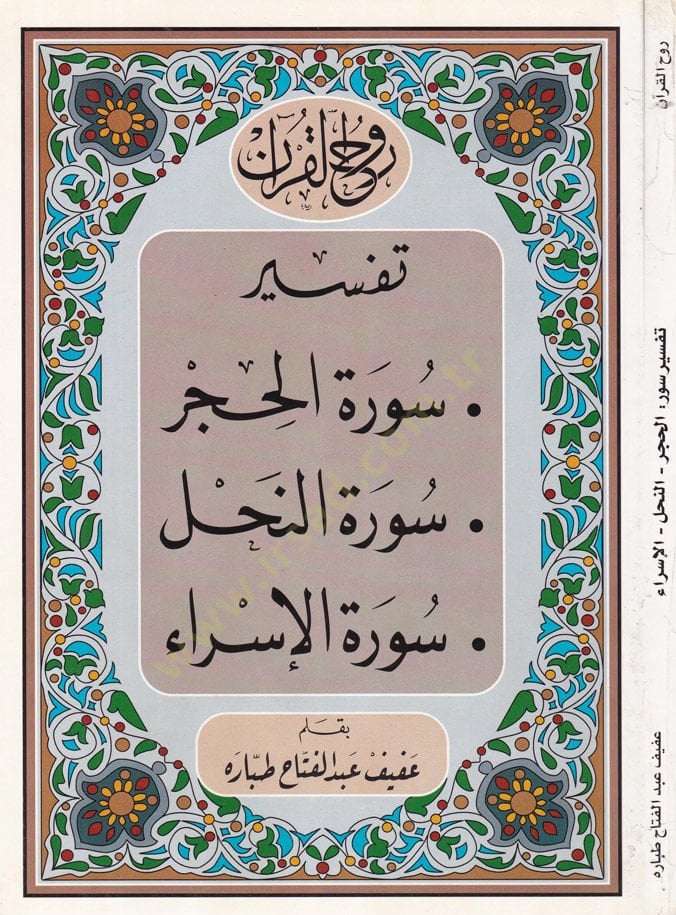 روح القرآن
تفسير
• سُورَة الحِجْر
• سُورَة النَحْل
• سُورَة الإسْراء
بقلم
عَفيفْ عَبدالفتّاح طبّاره
روح القرآن
تفسير سور: الحجر - النحل - الاسراء
عفيف عبد الفتاح طباره
www.irsad.com.tr